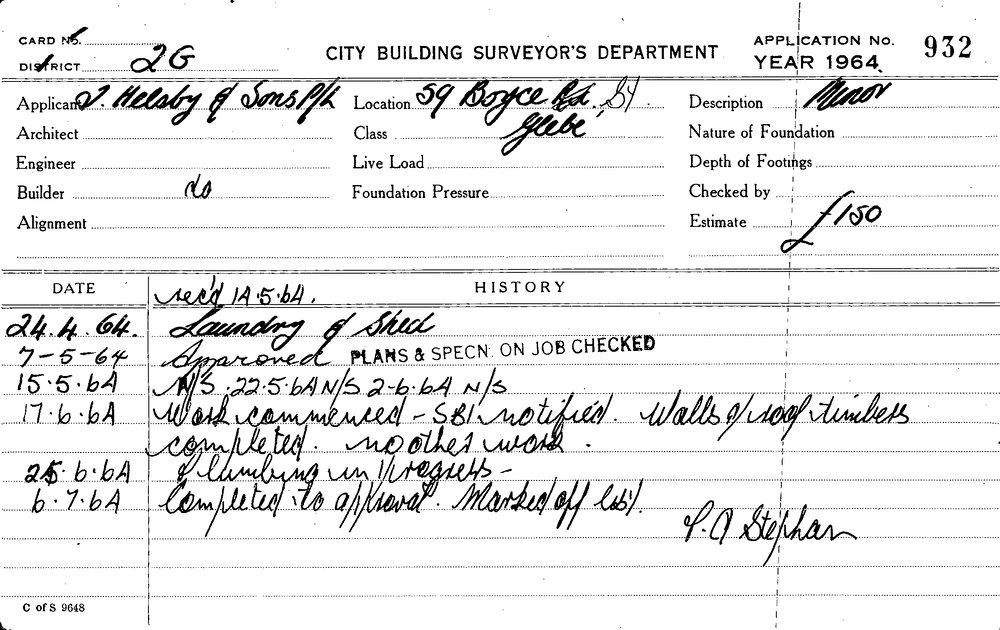 CARD No.
DISTRICT 2G
CITY BUILDING SURVEYOR'S DEPARTMENT
APPLICATION No. 932
YEAR 1964.
Applicant J. Helsby & Sons P/L Location 59 Boyce Rd. St Description Minor
Architect Class Glebe Nature of Foundation
Engineer Live Load Depth of Footings
Builder do Foundation Pressure Checked by
Alignment Estimate £150
DATE HISTORY
rec'd 14.5.64.
24.4.64. Laundry & Shed
7-5-64 Approved PLANS & SPECN. ON JOB CHECKED
15.5.64 N/S. 22.5.64 N/S 2-6.64 N/S
17.6.64 Work commenced - SBI notified. Walls & roof timbers
completed. no other work.
25.6.64 Plumbing in progress -
6.7.64 Completed to approval. Marked off list.
P.A Stephan
C of S 9648